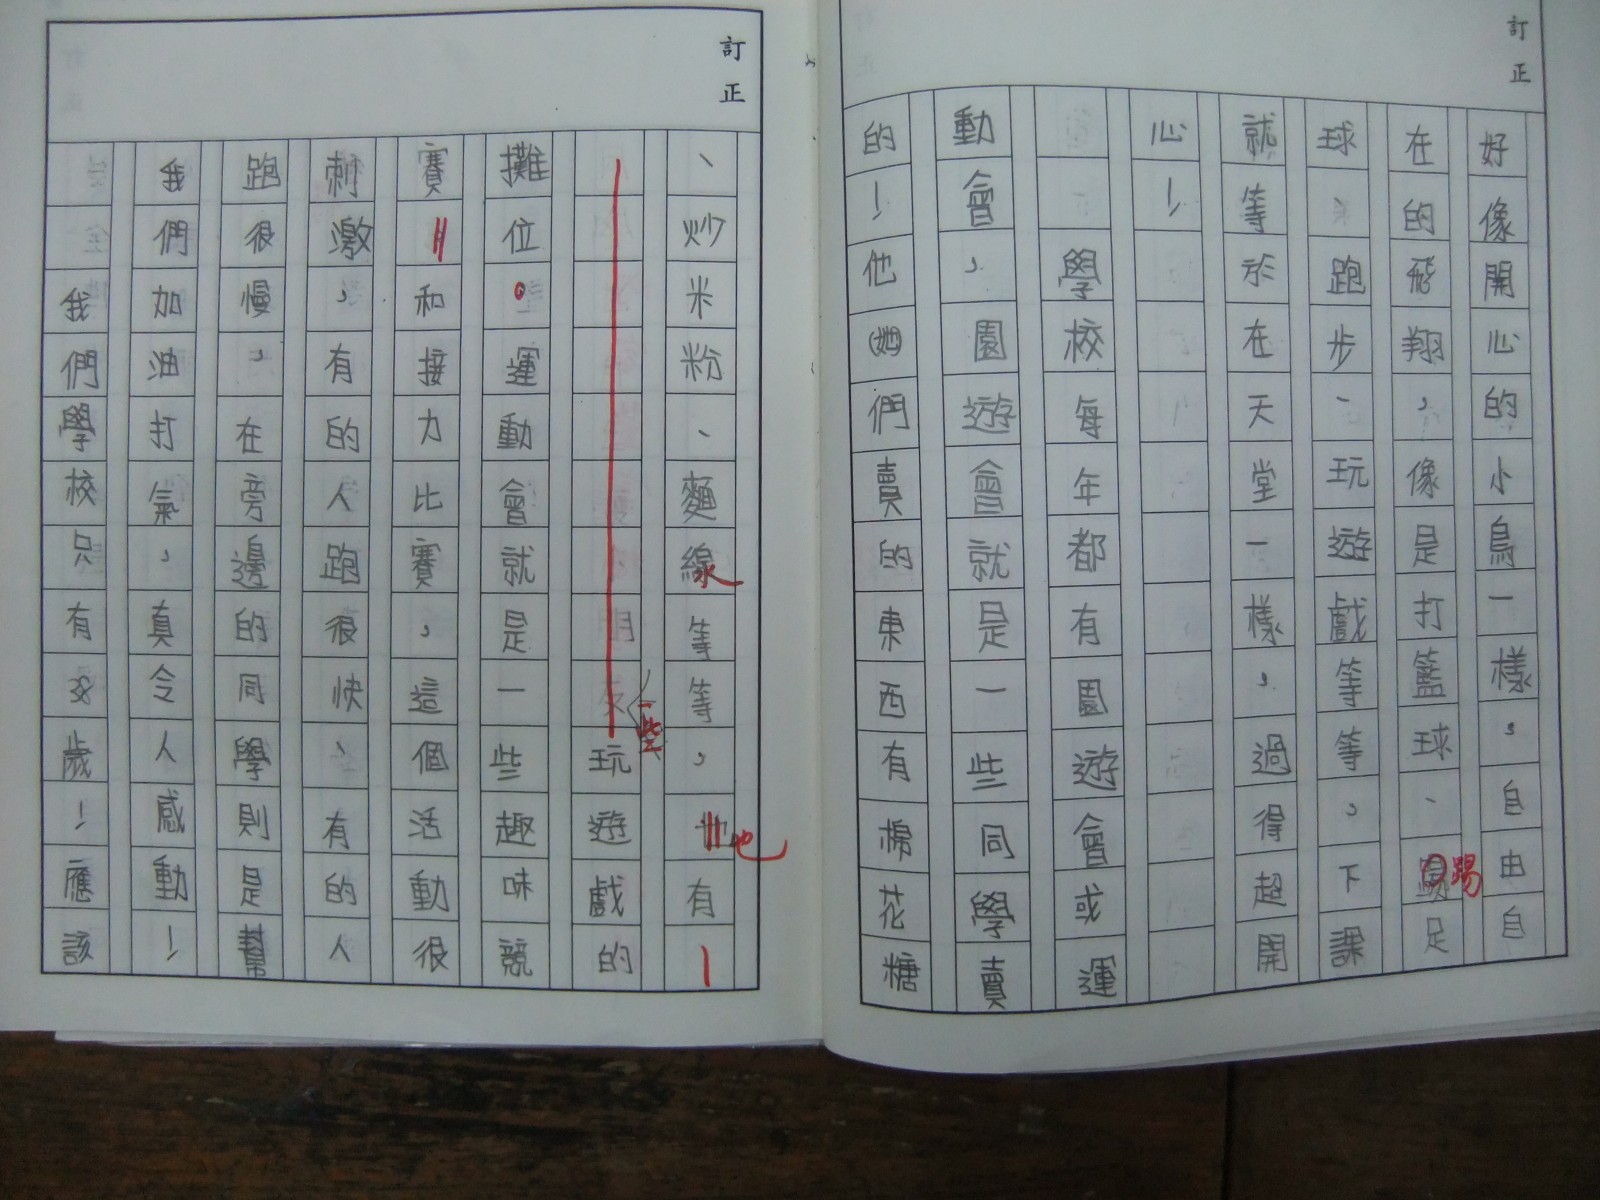 訂正
好像開心的小鳥一樣，自由自
在的飛翔，像是打籃球、踢足
球、跑步、玩遊戲等等，下課
就等於在天堂一樣，過得超開
心！
學校每年都有園遊會或運
動會，園遊會就是一些同學賣
的！他(她)們賣的東西有棉花糖
訂正
、炒米粉、麵線等等，也有一
些玩遊戲的
攤位。運動會就是一些趣味競
賽和接力比賽，這個活動很
刺激，有的人跑很快、有的人
跑很慢，在旁邊的同學則是幫
我們加油打氣，真令人感動！
我們學校只有38歲！應該